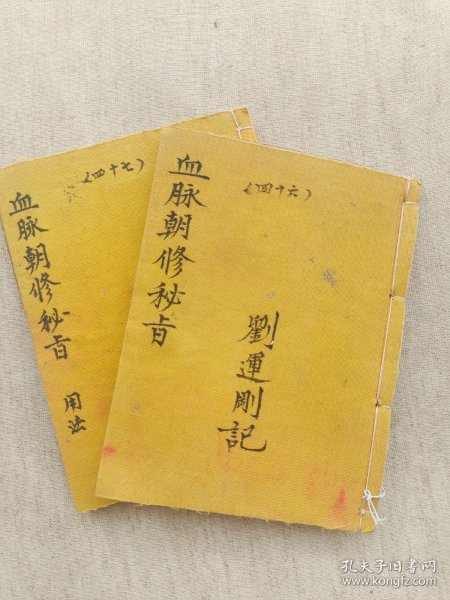 血脉朝修秘旨
（四十六）
劉運剛記
血脉朝修秘旨
用法
（四十七）
孔夫子旧书网
www.kongfz.com